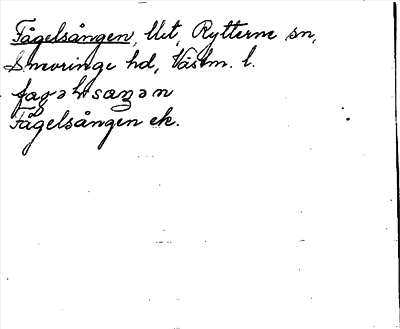 Fågelsången, Ut, Rytterne sn,
Snevringe hd, Västm. l.
Fågelsången ek.